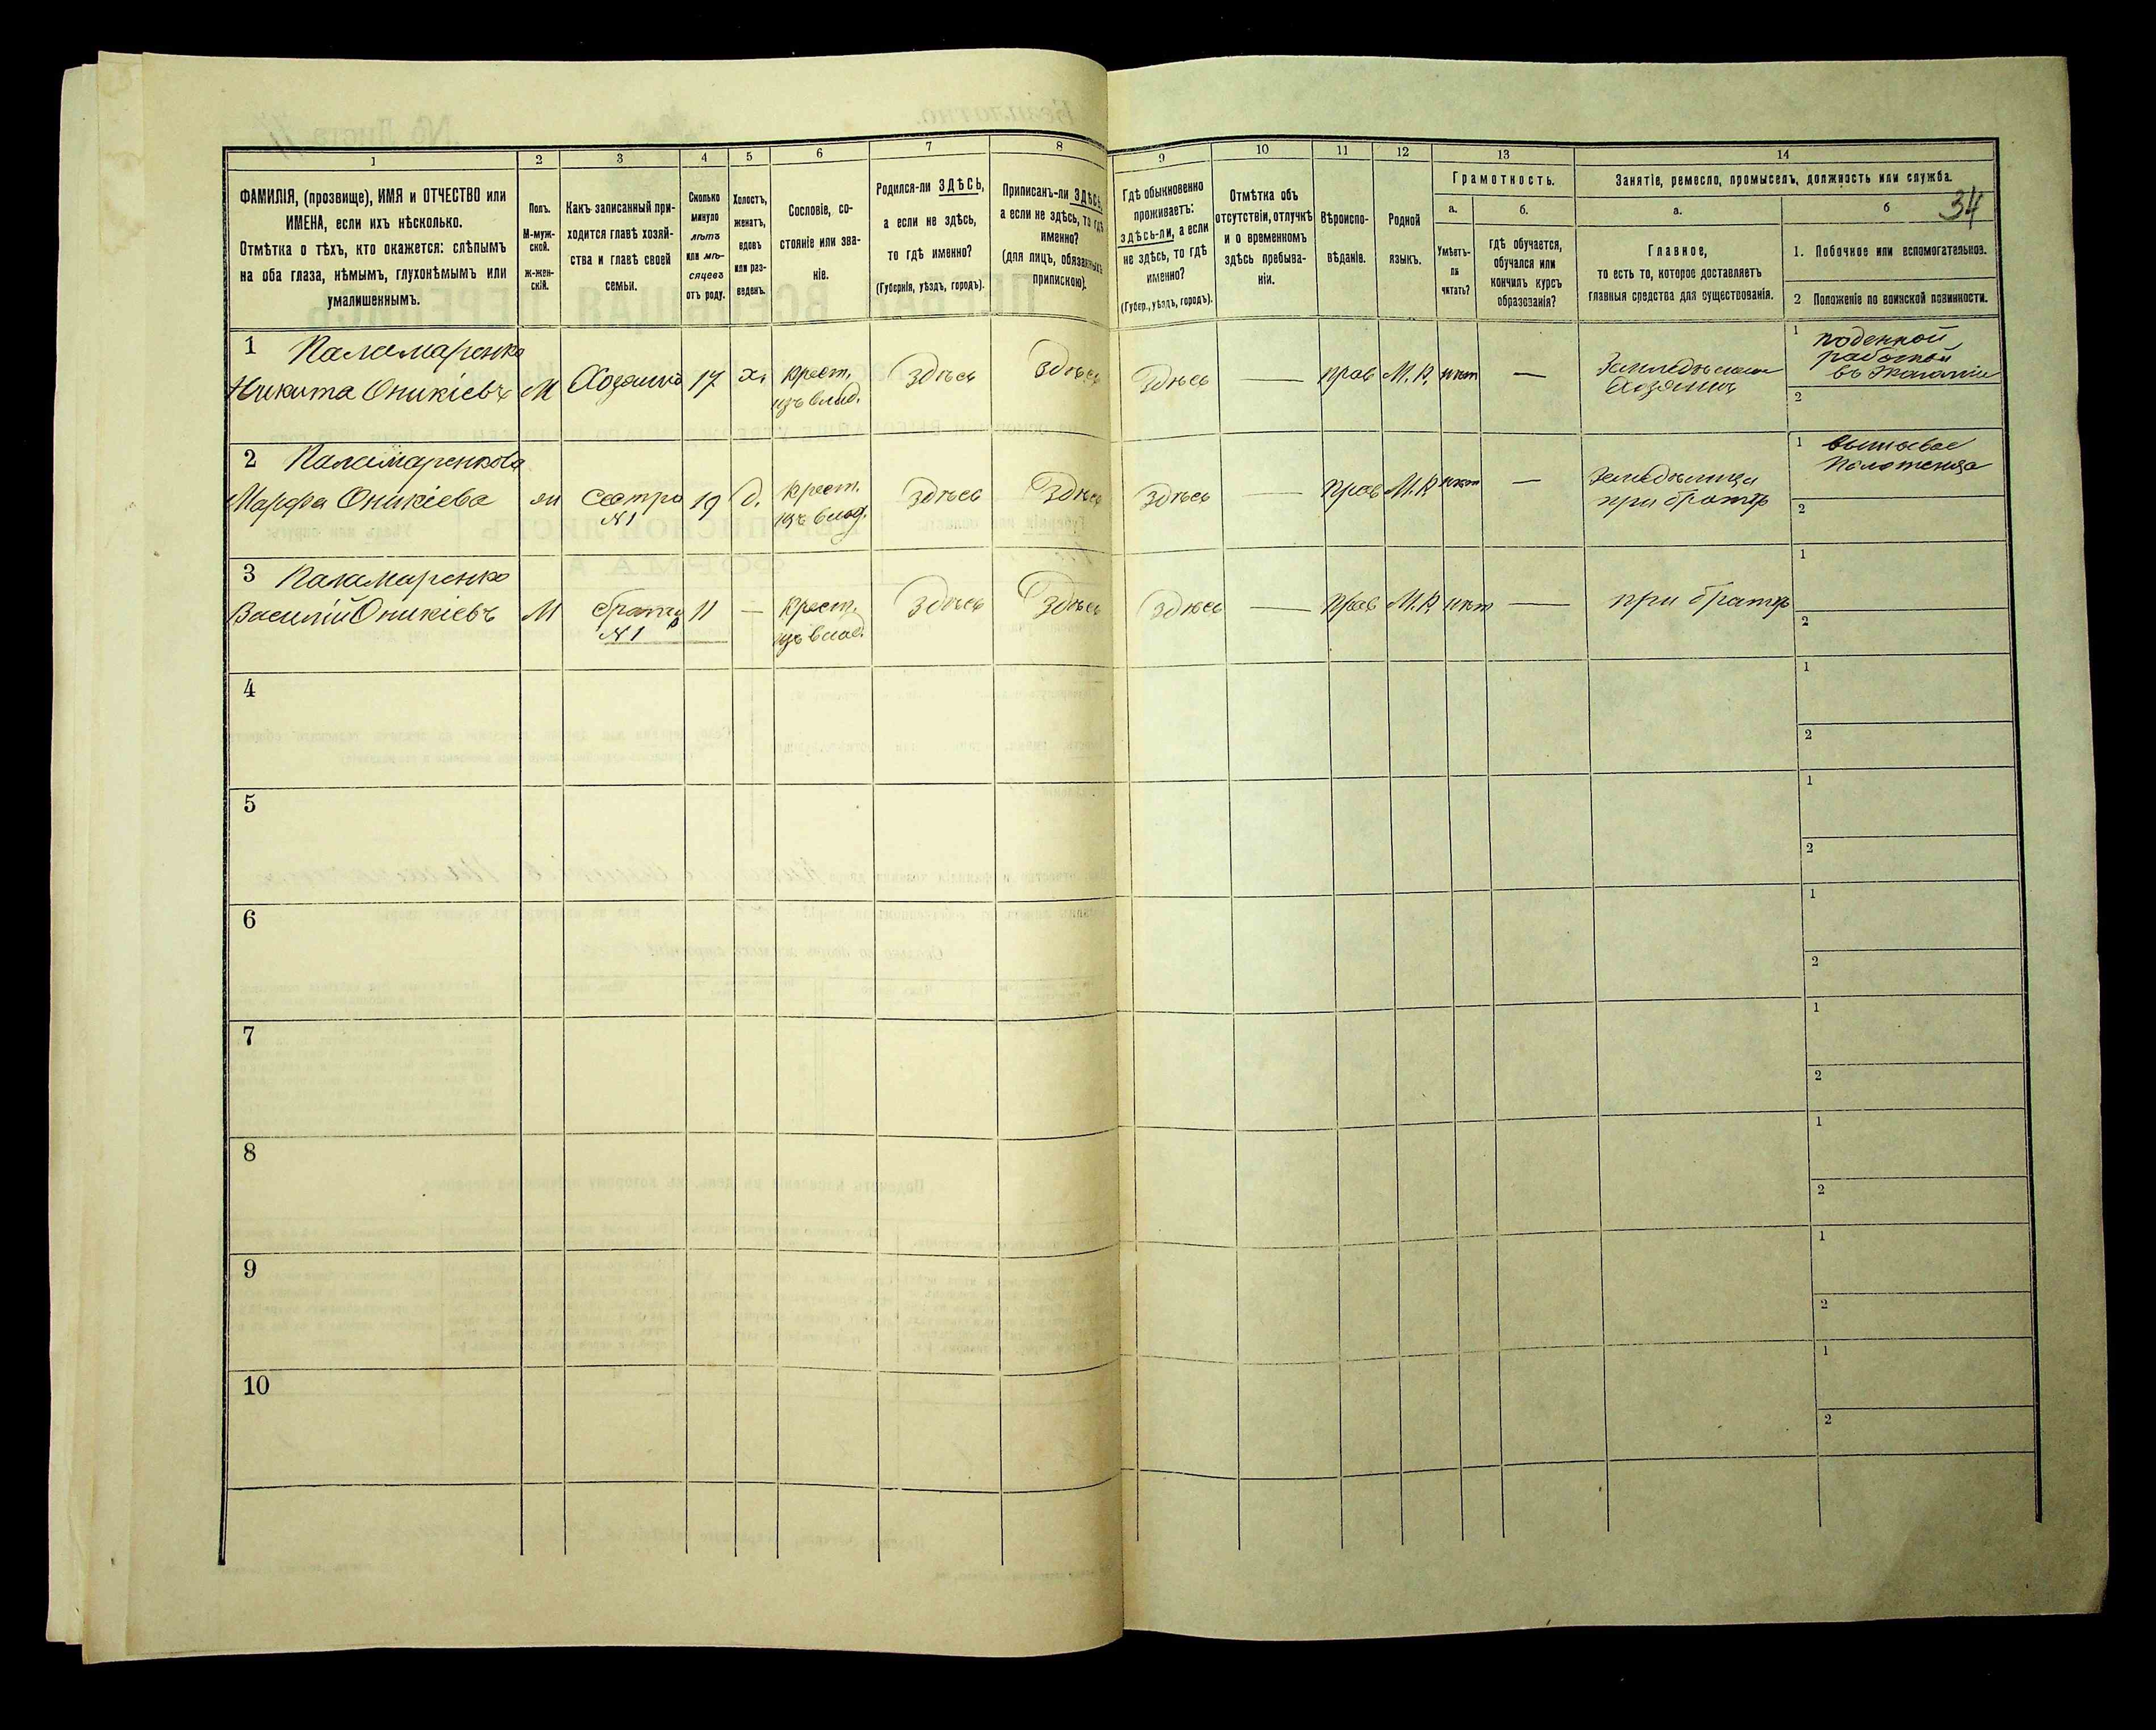 34
1 2 3 4 5 6 7 8 9 10 11 12 13 14
ФАМИЛІЯ, (прозвище), ИМЯ и ОТЧЕСТВО или
ИМЕНА, если ихъ нѣсколько.
Отмѣтка о тѣхъ, кто окажется: слѣпымъ
на оба глаза, нѣмымъ, глухонѣмымъ или
умалишеннымъ.
Полъ.
М-муж-
ской.
Ж-жен-
скій.
Какъ записанный при-
ходится главѣ хозяй-
ства и главѣ своей
семьи.
Сколько
минуло
лѣтъ
или мѣ-
сяцевъ
отъ роду.
Холостъ,
женатъ,
вдовъ
или раз-
веденъ.
Сословіе, со-
стояніе или зва-
ніе.
Родился-ли ЗДѢСЬ,
а если не здѣсь,
то гдѣ именно?
(Губернія, уѣздъ, городъ).
Приписанъ-ли ЗДѢСЬ,
а если не здѣсь, то гдѣ
именно?
(для лицъ, обязанныхъ
припискою).
Гдѣ обыкновенно
проживаетъ:
здѣсь-ли, а если
не здѣсь, то гдѣ
именно?
(Губер., уѣздъ, городъ).
Отмѣтка объ
отсутствіи, отлучкѣ
и о временномъ
здѣсь пребыва-
ніи.
Вѣроиспо-
вѣданіе.
Родной
языкъ.
Грамотность.
а.
Умѣетъ-
ли
читать?
б.
гдѣ обучается,
обучался или
кончилъ курсъ
образованія?
Занятіе, ремесло, промыселъ, должность или служба.
а.
Главное,
то есть то, которое доставляетъ
главныя средства для существованія.
б
1. Побочное или вспомогательное.
2 Положеніе по воинской повинности.
1 Паламаренко
Никита Оникіевъ М Хозяинъ 17 х. Крест.
изъ влад. Здѣсь Здѣсь Здѣсь — прав М.Р. нѣт — Земледѣлецъ
Хозяинъ
1 поденной
работой
въ Экономіи
2
2 Паламаренкова
Марфа Оникіева ж Сестра
№1 19 д. Крест.
изъ влад. Здѣсь Здѣсь Здѣсь — Прав М.Р. нѣт — Земледѣлица
при братѣ
1 вышивае
Полотенца
2
3 Паламаренко
Василій Оникіевъ М братъ
№1 11 — Крест.
изъ влад. Здѣсь Здѣсь Здѣсь — Прав М.Р. нѣт — при братѣ
1
2
4
1
2
5
1
2
6
1
2
7
1
2
8
1
2
9
1
2
10
1
2